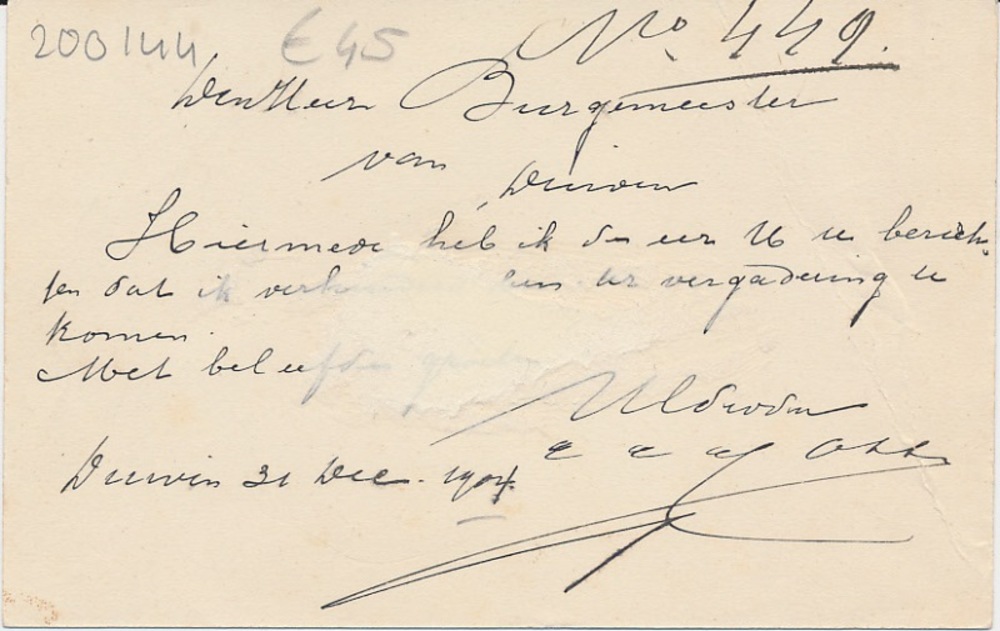 200144 €45 No. 449.
Den Heer Burgemeester
van
Duiven
Hiermede heb ik de eer U te berich-
ten dat ik ter vergadering te
komen.
Met beleefde
UEdwdn
Duiven 31 Dec. 1904